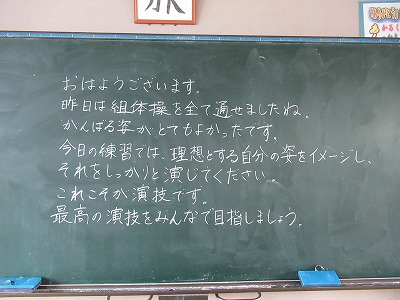 おはようございます。
昨日は組体操を全て通せましたね。
がんばる姿がとてもよかったです。
今日の練習では、理想とする自分の姿をイメージし、
それをしっかりと演じてください。
これこそが演技です。
最高の演技をみんなで目指しましょう。